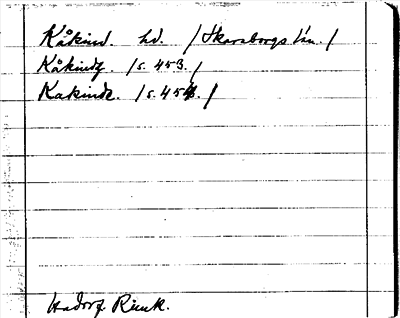 Kåkind. hd. /Skaraborgs län./
Kåkindz. /s. 453./
Kakinde. /s. 454./
Hadorf. Rimk.